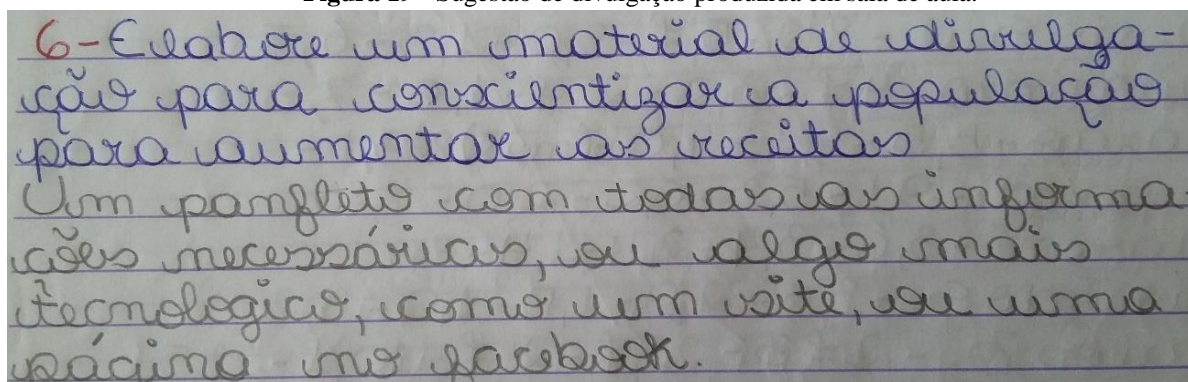 Figura 19 – Sugestão de divulgação produzida em sala de aula.
6-Elabore um material de divulga-
ção para conscientizar a população
para aumentar as receitas
Um panfleto com todas as informa
ções necessárias, ou algo mais
tecnologico, como um site, ou uma
página no facebook.